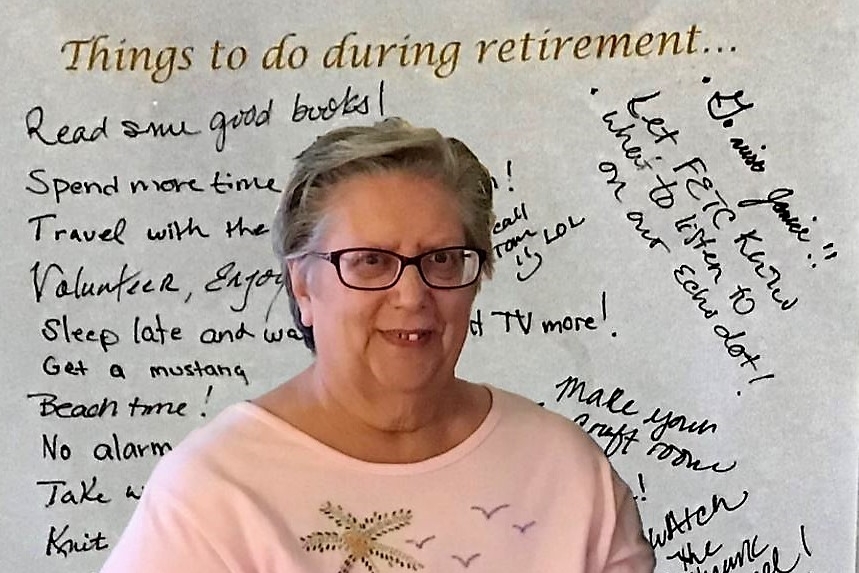 Things to do during retirement...
Read some good books!
Spend more time
Travel with the
call
LOL
Volunteer, Enjoy
Sleep late and wa
TV more!
Get a mustang
Beach time!
No alarm
Take w
Knit
• To miss Janice!!
• Let FETC Know
what to listen to
on our Echo dot!
Make your
craft room
!
watch
the